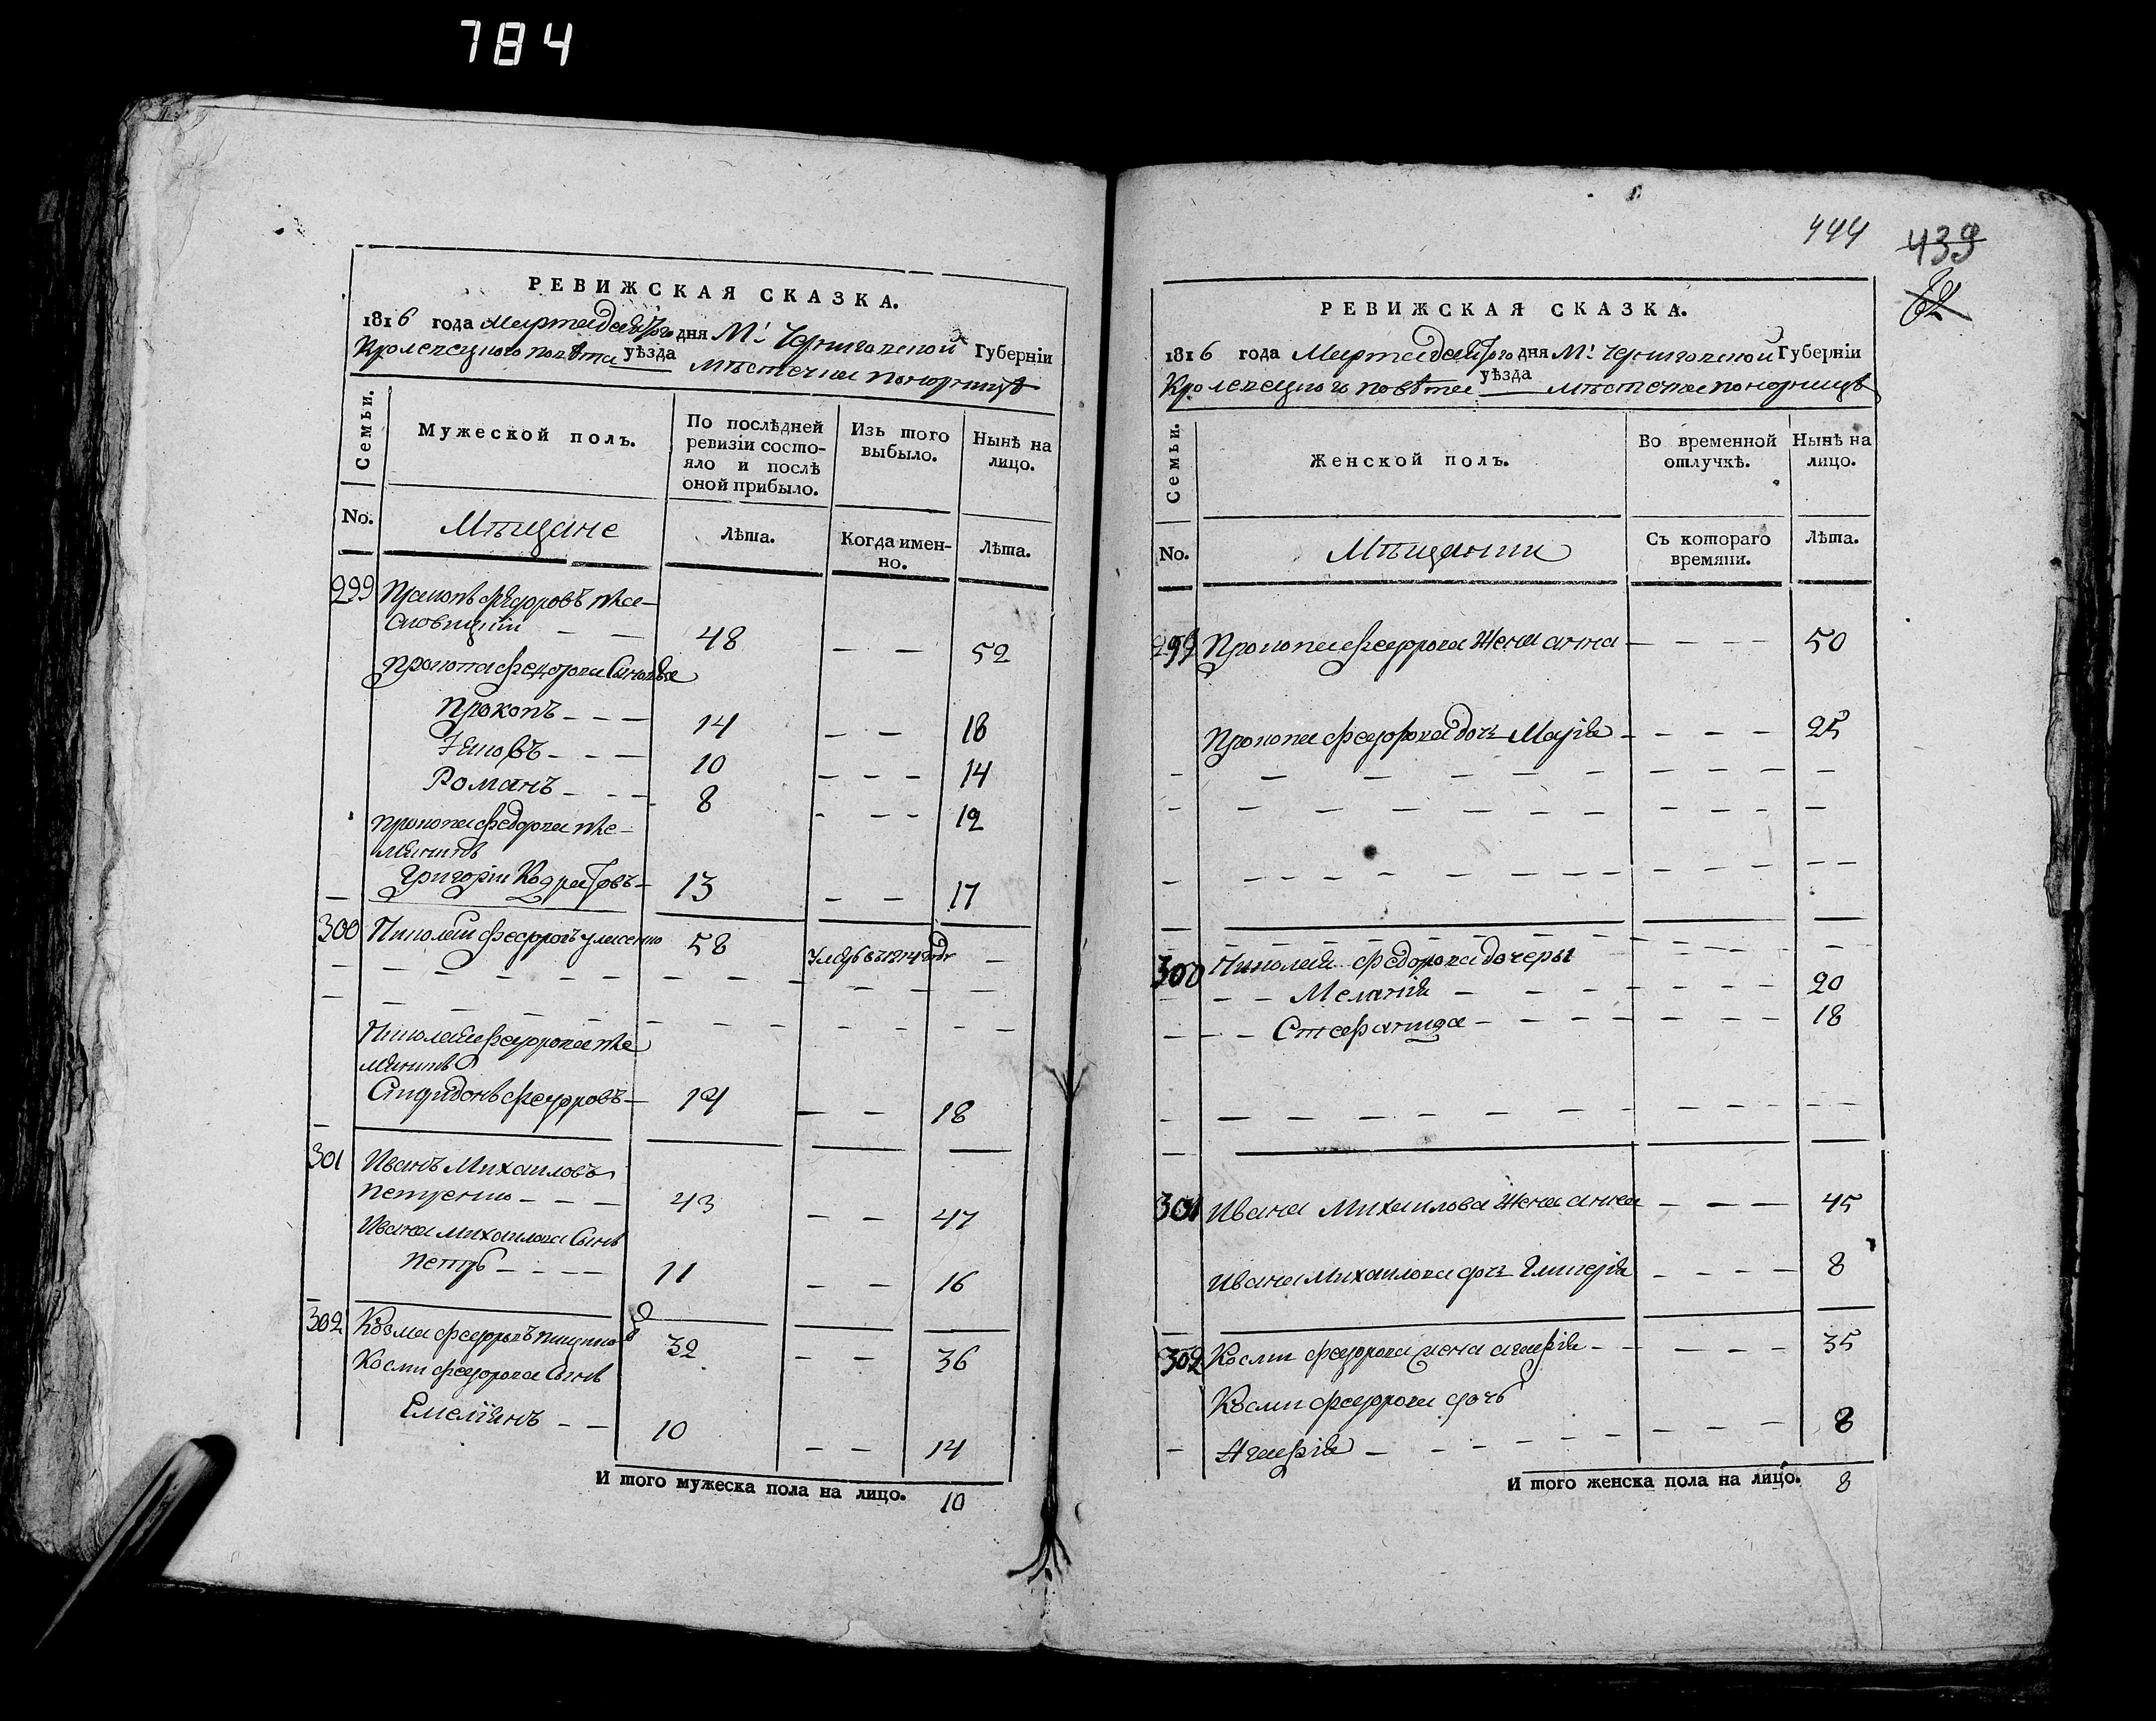 784
РЕВИЖСКАЯ СКАЗКА.
1816 года Марта дня М. Черниговской Губерніи
Кролевецкого повѣта уѣзда мѣстечка Понорницѣ
Семьи.
Мужеской полъ.
По послѣдней ревизіи состо-
яло и послѣ
оной прибыло.
Изъ того
выбыло.
Нынѣ на
лицо.
No.
Мѣщане
Лѣта.
Когда имен-
но.
Лѣта.
299 Прокопъ Федоровъ
48 — — 52
Прокопа Федорова Сыновья
Прокопъ — — — 14 — — 18
— — — 10 — — — 14
Романъ — — — 8 - — - - 12
Прокопа Федорова пле-
мянникъ
Григорій — 13 — — 17
300 Николай Федоровъ 58 1814 —
Николая Федорова пле
мянникъ
Спиридонъ Федоровъ — 14 — — 18
301 Иванъ Михаиловъ
Петренко — — — 43 — — 47
Ивана Михаилова Сынъ
Петръ — — — — 11 — — 16
302 Козма Федоровъ 32 — — 36
Космы Федорова Сынъ
Емеліянъ — — 10 — — 14
И того мужеска пола на лицо. 10
444 439
62
РЕВИЖСКАЯ СКАЗКА.
1816 года Марта дня М. Черниговской Губерніи
Кролевецкого повѣта уѣзда — мѣстечка Понорницѣ
Семьи.
Женской полъ.
Во временной
отлучкѣ.
Нынѣ на
лицо.
No.
Мѣщанки
Съ котораго
времяни.
Лѣта.
299 Прокопа Федорова Жена Анна — — — — 50
Прокопа Федорова дочь Марія — — — — 25
300 Николая Федорова дочеры
— — Меланія — — — — 20
— — Стефанида — — — — 18
301 Ивана Михаилова Жена Анна — — — 45
Ивана Михаилова дочь Гликерія — — — — 8
302 Космы Федорова жена Агафія — — — — 35
Космы Федорова дочь
Агафія — — — — 8
И того женска пола на лицо. 8